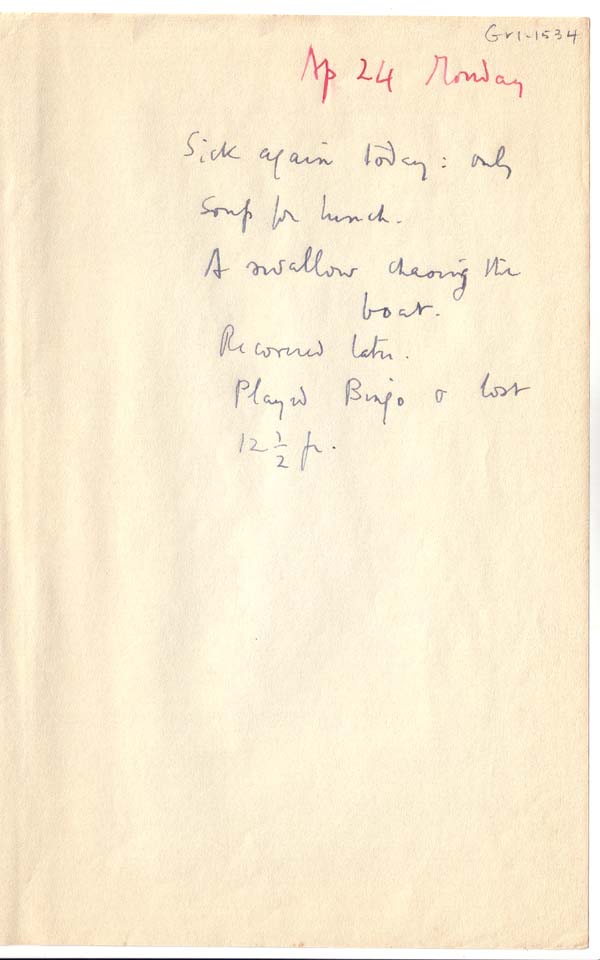 Gr1-1534
Ap 24 Monday
Sick again today: only
Soup for lunch.
A swallow chasing the
boat.
Recovered later.
Played Bingo & lost
12 1/2 fr.